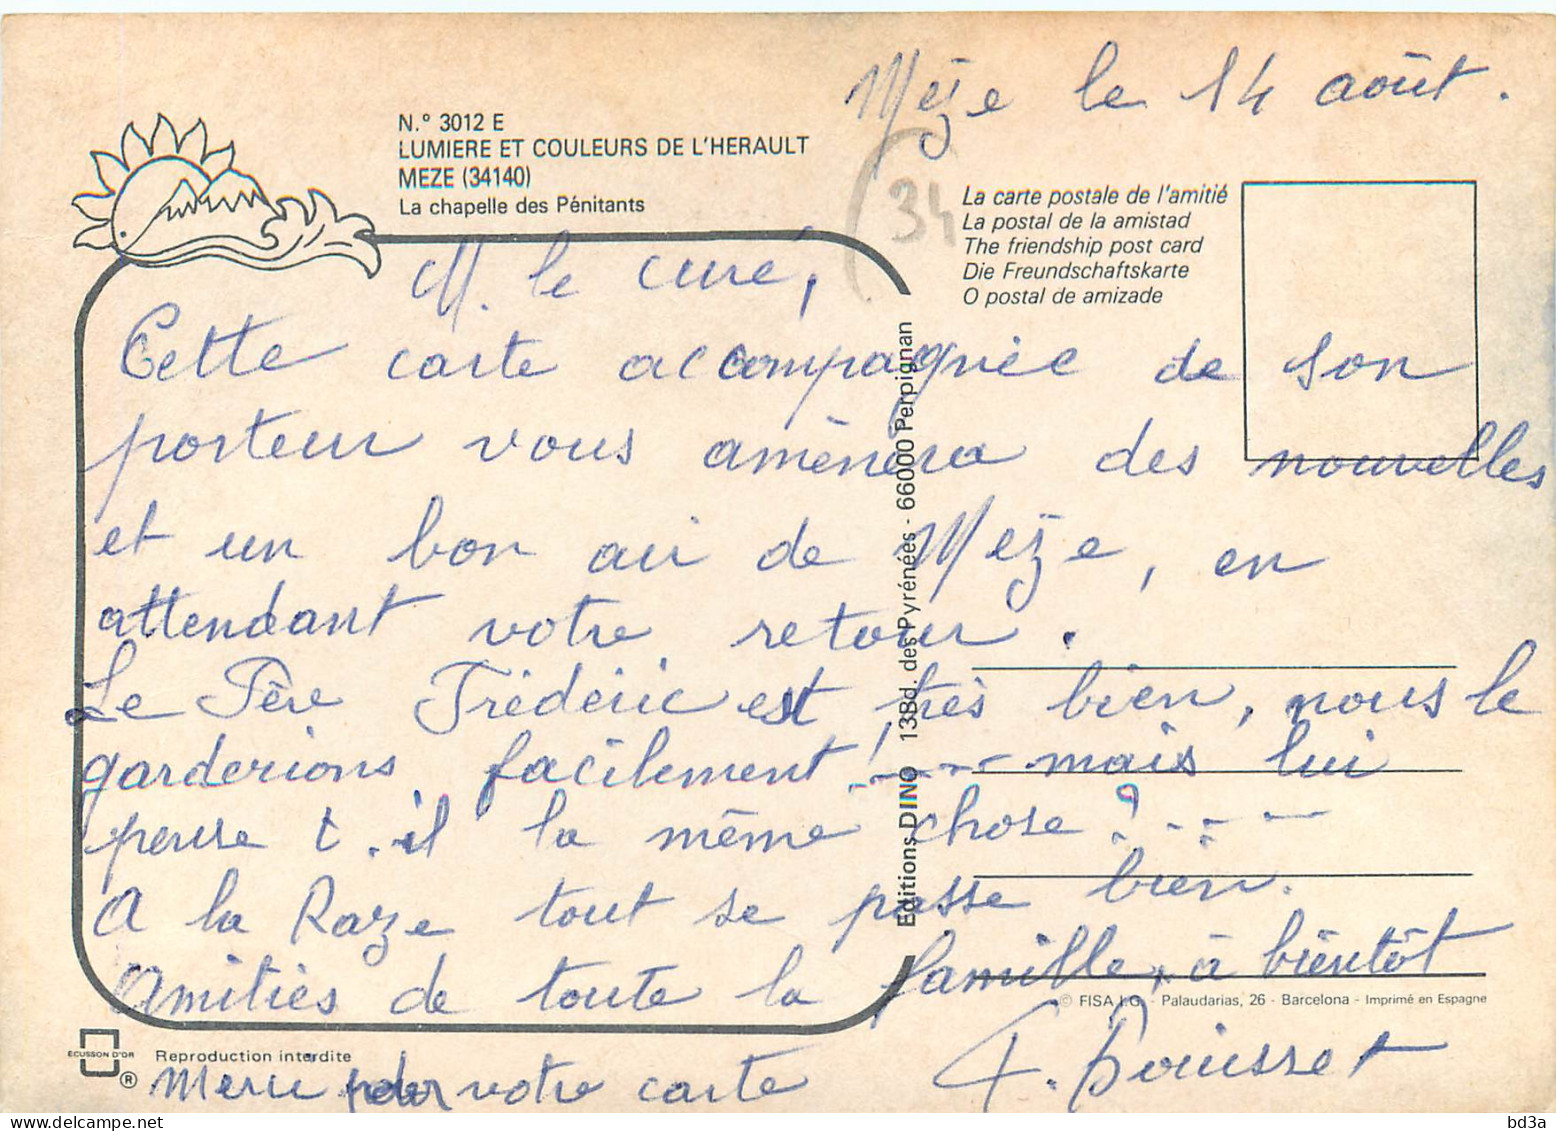 Mèze le 14 août.
N.º 3012 E
LUMIERE ET COULEURS DE L'HERAULT
MEZE (34140)
La chapelle des Pénitants
34
La carte postale de l'amitié
La postal de la amistad
The friendship post card
Die Freundschaftskarte
O postal de amizade
M. le curé,
Cette carte accompagnée de son
porteur vous amènera des nouvelles
et un bon air de Mèze, en
attendant votre retour.
Le Père Frédéric est très bien, nous le
garderions facilement !---- mais lui
pense t.il la même chose ?----
A la Raze tout se passe bien.
Amitiés de toute la famille, à bientôt
Merci pour votre carte
F. Bouisset
Editions DINO 13Bd. des Pyrénées - 66000 Perpignan
© FISA I.G. - Palaudarias, 26 - Barcelona - Imprimé en Espagne
ECUSSON D'OR
®
Reproduction interdite
bd3a